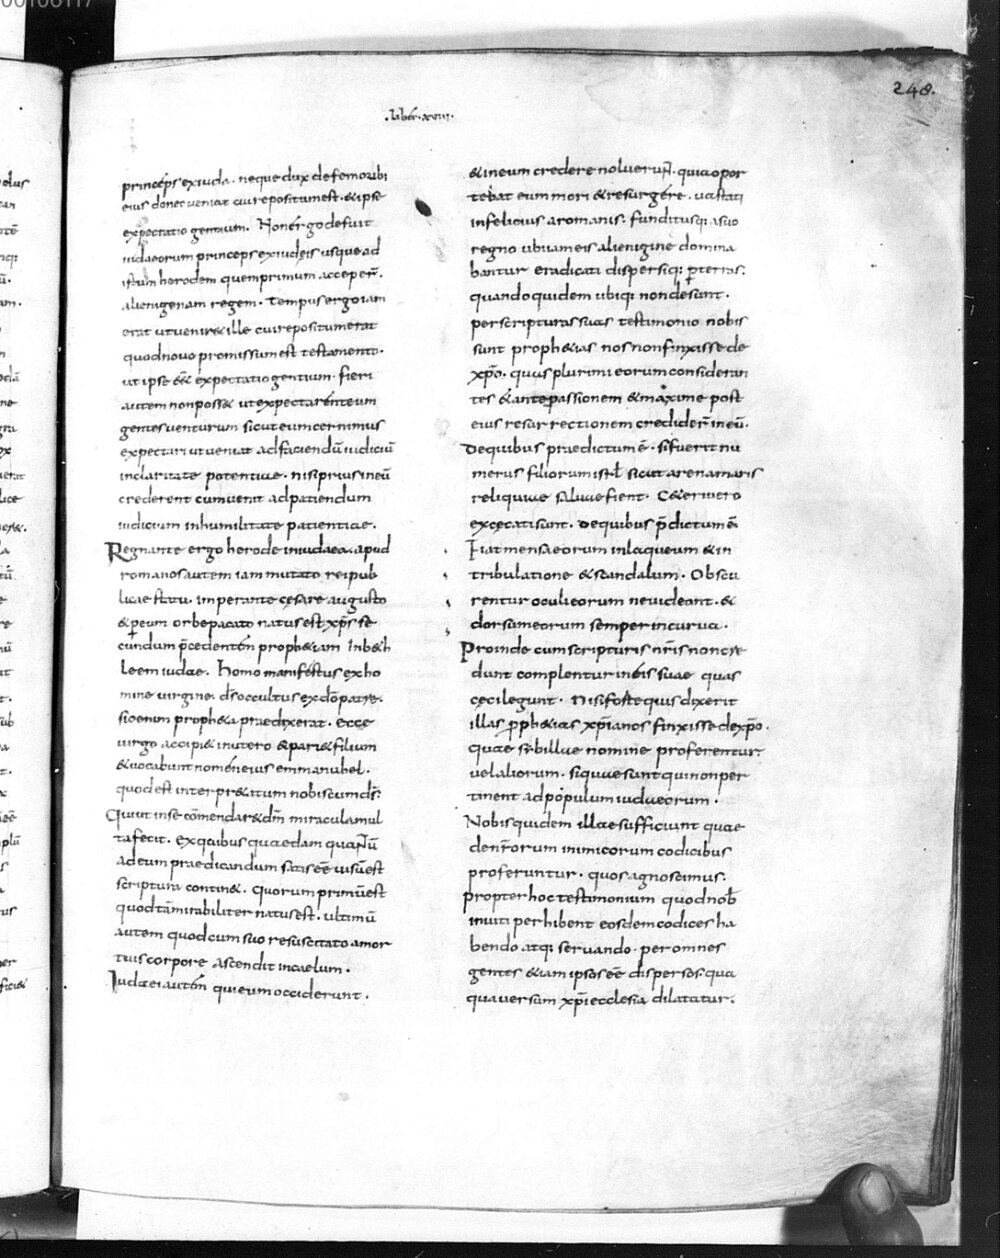 248.
.liber.xviii.
princeps exiuda. neque dux defemorib;
eius donec ueniat cui repositumest. & ipse
expectatio gentium. Non ergo defuit
iudaeorum princeps exiudeis usque ad
istum herodem quem primum acceper̄.
alienigenam regem. Tempus ergo iam
erat ut uenir& ille cui repositum erat
quod nouo promissum est testamento.
ut ipse ēē& expectatio gentium. fieri
autem non poss& ut expectarent eum
gentes uenturum sicut eum cernimus
expectari ut ueniat ad faciendū iudiciū
in claritate potentiae. nisi prius in eū
crederent cum uenit ad patiendum
iudicium in humilitate patientiae.
Regnante ergo herode in iudaea. apud
romanos autem iam mutato reipub
licae statu. imperante cęsare augusto
& ꝑ eum orbe pacato natus est xp̄s se
cundum p̄cedentem proph&iam. In b&h
leem iudae. Homo manifestus ex ho
mine uirgine. d̄s occultus ex dō patre.
sic enim proph&a praedixerat. Ecce
uirgo accipi& in utero & pari& filium
& uocabunt nomen eius emmanuhel.
quod est interpr&atum nobiscum d̄s.
Qui ut in se cōmendar& dm̄ miracula mul
ta fecit. Ex quibus quaedam quantū
ad eum praedicandum satis ēē uisū est
scriptura contin&. Quorum primū est
quod tā mirabiliter natus est. ultimū
autem quod cum suo resuscitato amor
tuis corpore ascendit in caelum.
Iudaei autem qui eum occiderunt.
& in eum credere noluerunt. quia opor
tebat eum mori & resurgere. uastati
infelicius a romanis. funditusq; a suo
regno ubi iam eis alienigine domina
bantur eradicati dispersiq; ꝑ terras.
quando quidem ubiq; non desunt.
per scripturas suas testimonio nobis
sunt proph&ias nos non finxisse de
xp̄o. quas plurimi eorum consideran
tes & ante passionem & maxime post
eius resurrectionem crediderunt in eū.
De quibus praedictum ē. si fuerit nu
merus filiorum isrl̄ sicut arena maris
reliquiae saluae fient. Ceteri uero
excęcati sunt. De quibus p̄dictum ē.
Fiat mensa eorum in laqueum & in
tribulatione & scandalum. Obscu
rentur oculi eorum ne uideant. &
dorsum eorum semper incurua.
Proinde cum scripturis nr̄is non cre
dunt complentur in eis suae quas
cęci legunt. Nisi forte quis dixerit
illas ꝓph&ias xp̄ianos finxisse de xp̄o.
quae sybillae nomine proferentur.
uel aliorum. si quae sunt qui non per
tinent ad populum iudaeorum.
Nobis quidem illae sufficiunt quae
de nr̄orum inimicorum codicibus
proferuntur. quos agnoscimus.
propter hoc testimonium quod nob̄
inuiti perhibent eosdem codices ha
bendo atq; seruando. per omnes
gentes &iam ipsos ēē dispersos. qua
qua uersum xp̄i ecclesia dilatatur.